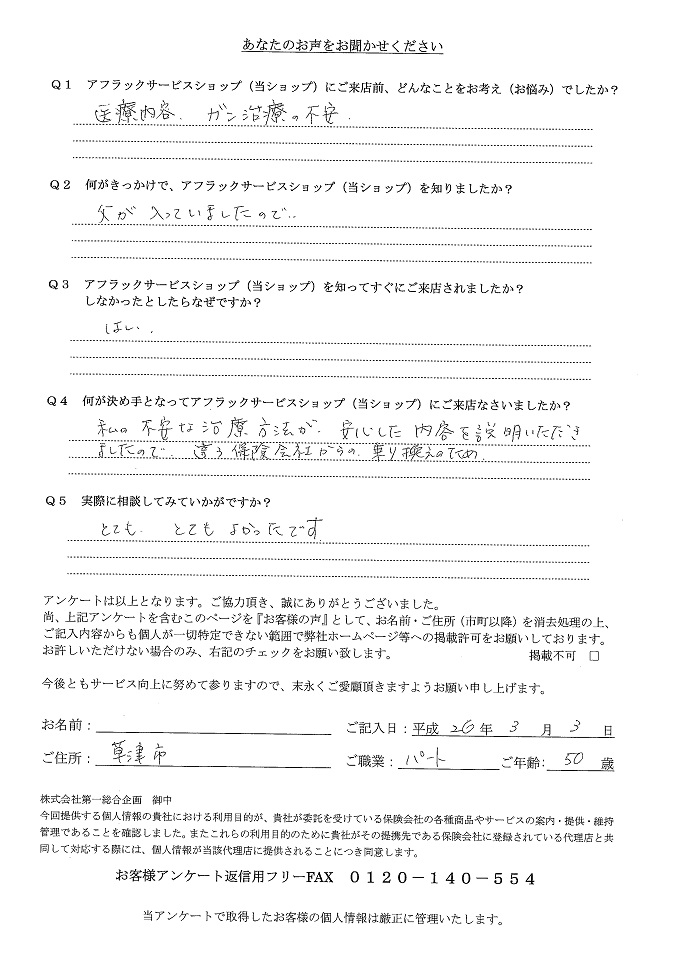 あなたのお声をお聞かせください
Q1 アフラックサービスショップ（当ショップ）にご来店前、どんなことをお考え（お悩み）でしたか？
医療内容. ガン治療の不安.
Q2 何がきっかけで、アフラックサービスショップ（当ショップ）を知りましたか？
父が 入っていましたので..
Q3 アフラックサービスショップ（当ショップ）を知ってすぐにご来店されましたか？
しなかったとしたらなぜですか？
はい.
Q4 何が決め手となってアフラックサービスショップ（当ショップ）にご来店なさいましたか？
私の 不安な治療方法が. 安心した 内容を説明いただき
ましたので. 違う保険会社からの. 乗り換えのため.
Q5 実際に相談してみていかがですか？
とても. とても よかったです
アンケートは以上となります。ご協力頂き、誠にありがとうございました。
尚、上記アンケートを含むこのページを『お客様の声』として、お名前・ご住所（市町以降）を消去処理の上、
ご記入内容からも個人が一切特定できない範囲で弊社ホームページ等への掲載許可をお願いしております。
お許しいただけない場合のみ、右記のチェックをお願い致します。 掲載不可 □
今後ともサービス向上に努めて参りますので、末永くご愛顧頂きますようお願い申し上げます。
お名前： ご記入日：平成 26 年 3 月 3 日
ご住所： 草津市 ご職業： パート ご年齢： 50 歳
株式会社第一総合企画 御中
今回提供する個人情報の貴社における利用目的が、貴社が委託を受けている保険会社の各種商品やサービスの案内・提供・維持
管理であることを確認しました。またこれらの利用目的のために貴社がその提携先である保険会社に登録されている代理店と共
同して対応する際には、個人情報が当該代理店に提供されることにつき同意します。
お客様アンケート返信用フリーFAX ０１２０－１４０－５５４
当アンケートで取得したお客様の個人情報は厳正に管理いたします。